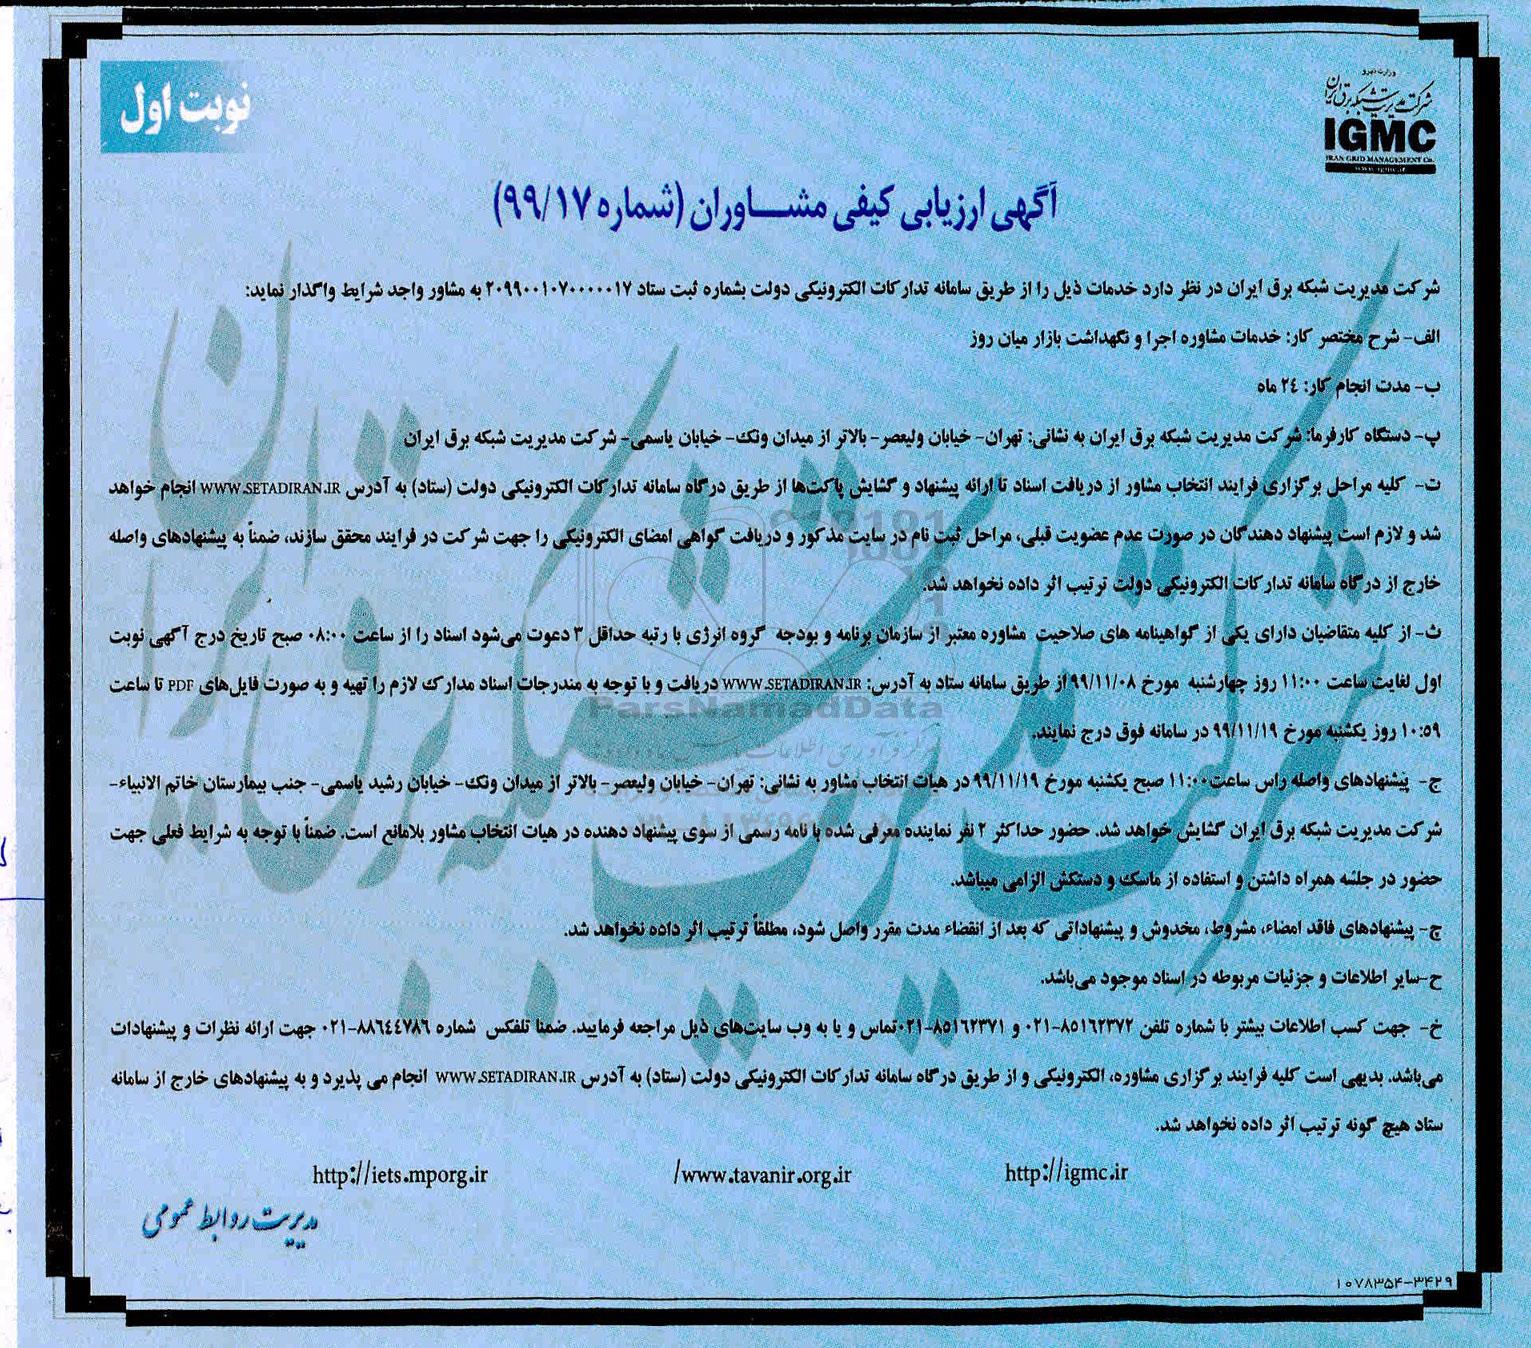 وزارت نیرو
شرکت مدیریت شبکه برق ایران
IGMC
IRAN GRID MANAGEMENT Co.
www.igmc.ir
نوبت اول
آگهی ارزیابی کیفی مشاوران (شماره ۹۹/۱۷)
شرکت مدیریت شبکه برق ایران در نظر دارد خدمات ذیل را از طریق سامانه تدارکات الکترونیکی دولت بشماره ثبت ستاد ۲۰۹۹۰۰۱۰۷۰۰۰۰۰۱۷ به مشاور واجد شرایط واگذار نماید:
الف- شرح مختصر کار: خدمات مشاوره اجرا و نگهداشت بازار میان روز
ب- مدت انجام کار: ۲۴ ماه
پ- دستگاه کارفرما: شرکت مدیریت شبکه برق ایران به نشانی: تهران- خیابان ولیعصر- بالاتر از میدان ونک- خیابان یاسمی- شرکت مدیریت شبکه برق ایران
ت- کلیه مراحل برگزاری فرایند انتخاب مشاور از دریافت اسناد تا ارائه پیشنهاد و گشایش پاکت‌ها از طریق درگاه سامانه تدارکات الکترونیکی دولت (ستاد) به آدرس WWW.SETADIRAN.IR انجام خواهد
شد و لازم است پیشنهاد دهندگان در صورت عدم عضویت قبلی، مراحل ثبت نام در سایت مذکور و دریافت گواهی امضای الکترونیکی را جهت شرکت در فرایند محقق سازند، ضمناً به پیشنهادهای واصله
خارج از درگاه سامانه تدارکات الکترونیکی دولت ترتیب اثر داده نخواهد شد.
ث- از کلیه متقاضیان دارای یکی از گواهینامه های صلاحیت مشاوره معتبر از سازمان برنامه و بودجه گروه انرژی با رتبه حداقل ۳ دعوت می‌شود اسناد را از ساعت ۰۸:۰۰ صبح تاریخ درج آگهی نوبت
اول لغایت ساعت ۱۱:۰۰ روز چهارشنبه مورخ ۹۹/۱۱/۰۸ از طریق سامانه ستاد به آدرس: WWW.SETADIRAN.IR دریافت و با توجه به مندرجات اسناد مدارک لازم را تهیه و به صورت فایل‌های PDF تا ساعت
۱۰:۵۹ روز یکشنبه مورخ ۹۹/۱۱/۱۹ در سامانه فوق درج نمایند.
ج- پیشنهادهای واصله راس ساعت ۱۱:۰۰ صبح یکشنبه مورخ ۹۹/۱۱/۱۹ در هیات انتخاب مشاور به نشانی: تهران- خیابان ولیعصر- بالاتر از میدان ونک- خیابان رشید یاسمی- جنب بیمارستان خاتم الانبیاء-
شرکت مدیریت شبکه برق ایران گشایش خواهد شد. حضور حداکثر ۲ نفر نماینده معرفی شده با نامه رسمی از سوی پیشنهاد دهنده در هیات انتخاب مشاور بلامانع است. ضمناً با توجه به شرایط فعلی جهت
حضور در جلسه همراه داشتن و استفاده از ماسک و دستکش الزامی میباشد.
چ- پیشنهادهای فاقد امضاء، مشروط، مخدوش و پیشنهاداتی که بعد از انقضاء مدت مقرر واصل شود، مطلقاً ترتیب اثر داده نخواهد شد.
ح-سایر اطلاعات و جزئیات مربوطه در اسناد موجود می‌باشد.
خ- جهت کسب اطلاعات بیشتر با شماره تلفن ۸۵۱۶۲۳۷۲-۰۲۱ و ۸۵۱۶۲۳۷۱-۰۲۱ تماس و یا به وب سایت‌های ذیل مراجعه فرمایید. ضمنا تلفکس شماره ۸۸۶۴۴۷۸۶-۰۲۱ جهت ارائه نظرات و پیشنهادات
می‌باشد. بدیهی است کلیه فرایند برگزاری مشاوره، الکترونیکی و از طریق درگاه سامانه تدارکات الکترونیکی دولت (ستاد) به آدرس WWW.SETADIRAN.IR انجام می پذیرد و به پیشنهادهای خارج از سامانه
ستاد هیچ گونه ترتیب اثر داده نخواهد شد.
http://igmc.ir
/www.tavanir.org.ir
http://iets.mporg.ir
مدیریت روابط عمومی
۱۰۷۸۳۵۴-۳۴۲۹
ParsNamadData